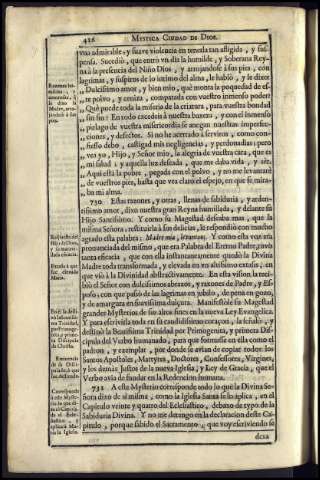 426 MYSTICA CIUDAD DE DIOS.
una admirable, y suave violencia en tenerla tan afligida, y sus-
pensa. Sucediò, que entrò un dia la humilde, y Soberana Rey-
na à la presencia del Niño Dios, y arrojandose à sus pies, con
lagrimas, y suspiros de lo intimo del alma, le hablò, y le dixo:
Dulcissimo amor, y bien mio, què monta la poquedad de es-
te polvo, y ceniza, comparada con vuestro inmenso poder?
Què puede toda la miseria de la criatura, para vuestra bondad
sin fin? En todo excedeis à nuestra baxeza, y con el inmenso
pielago de vuestra misericordia se anegan nuestras imperfec-
ciones, y defectos. Si no he acertado à serviros, como con-
fiesso debo, castigad mis negligencias, y perdonadlas; pero
vea yo, Hijo, y Señor mio, la alegria de vuestra cara, que es
mi salud, y aquella luz deseada, que me daba vida, y sèr.
Aqui està la pobre, pegada con el polvo, y no me levantarè
de vuestros pies, hasta que vea claro el espejo, en que se mira-
ba mi alma.
730. Estas razones, y otras, llenas de sabiduria, y arden-
tissimo amor, dixo nuestra gran Reyna humillada, y delante su
Hijo Santissimo. Y como su Magestad deseaba mas, que la
misma Señora, restituirla à sus delicias, le respondiò con mucho
agrado esta palabra: Madre mia, levantaos. Y como esta voz era
pronunciada del mismo, que era Palabra del Eterno Padre, tuvo
tanta eficacia, que con ella instantaneamente quedò la Divina
Madre toda transformada, y elevada en un altissimo extasis, en
que viò à la Divinidad abstractivamente. En esta vision la reci-
biò el Señor con dulcissimos abrazos, y razones de Padre, y Es-
poso, con que passò de las lagrimas en jubilo, de pena en gozo,
y de amargura en suavissima dulçura. Manifestòle su Magestad
grandes Mysterios de sus altos fines en la nueva Ley Evangelica.
Y para escrivirla toda en su candidissimo coraçon, la señalò, y
destinò la Beatissima Trinidad por Primogenita, y primera Disci-
pula del Verbo humanado, para que formasse en ella como el
padron, y exemplar, por donde se avian de copiar todos los
Santos Apostoles, Martyres, Doctores, Confessores, Virgines,
y los demàs Justos de la nueva Iglesia, y Ley de Gracia, que el
Verbo avia de fundar en la Redencion humana.
731 A este Mysterio corresponde todo lo que la Divina Se-
ñora dixo de sì misma, como la Iglesia Santa se lo aplica, en el
Capitulo veinte y quatro del Eclesiastico, debaxo de typo de la
Sabiduria Divina. Y no me detengo en la declaracion deste Ca-
pitulo, porque sabido el Sacramento, que voy escriviendo se
dexa